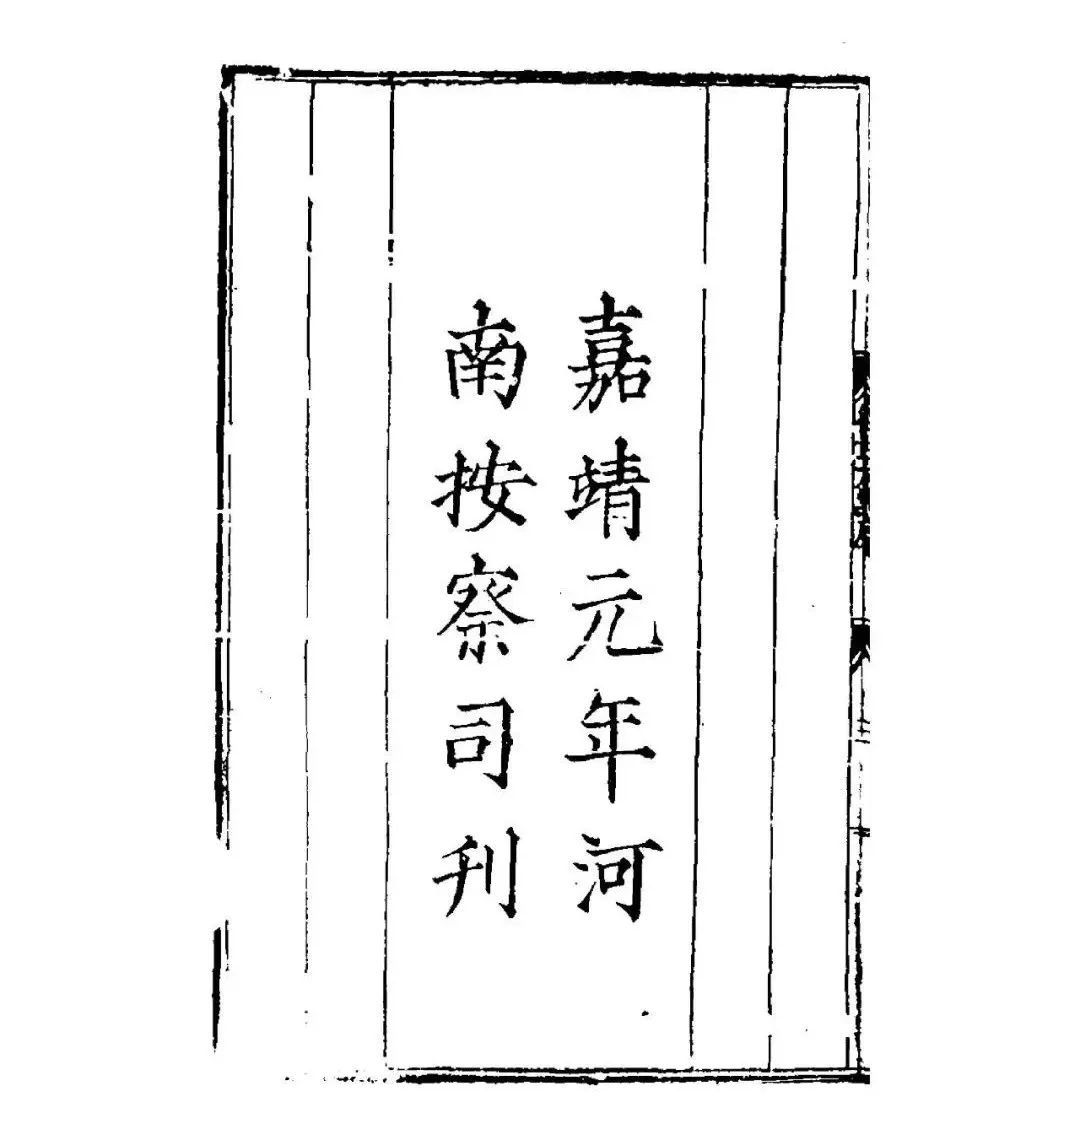 嘉靖元年河
南按察司刊